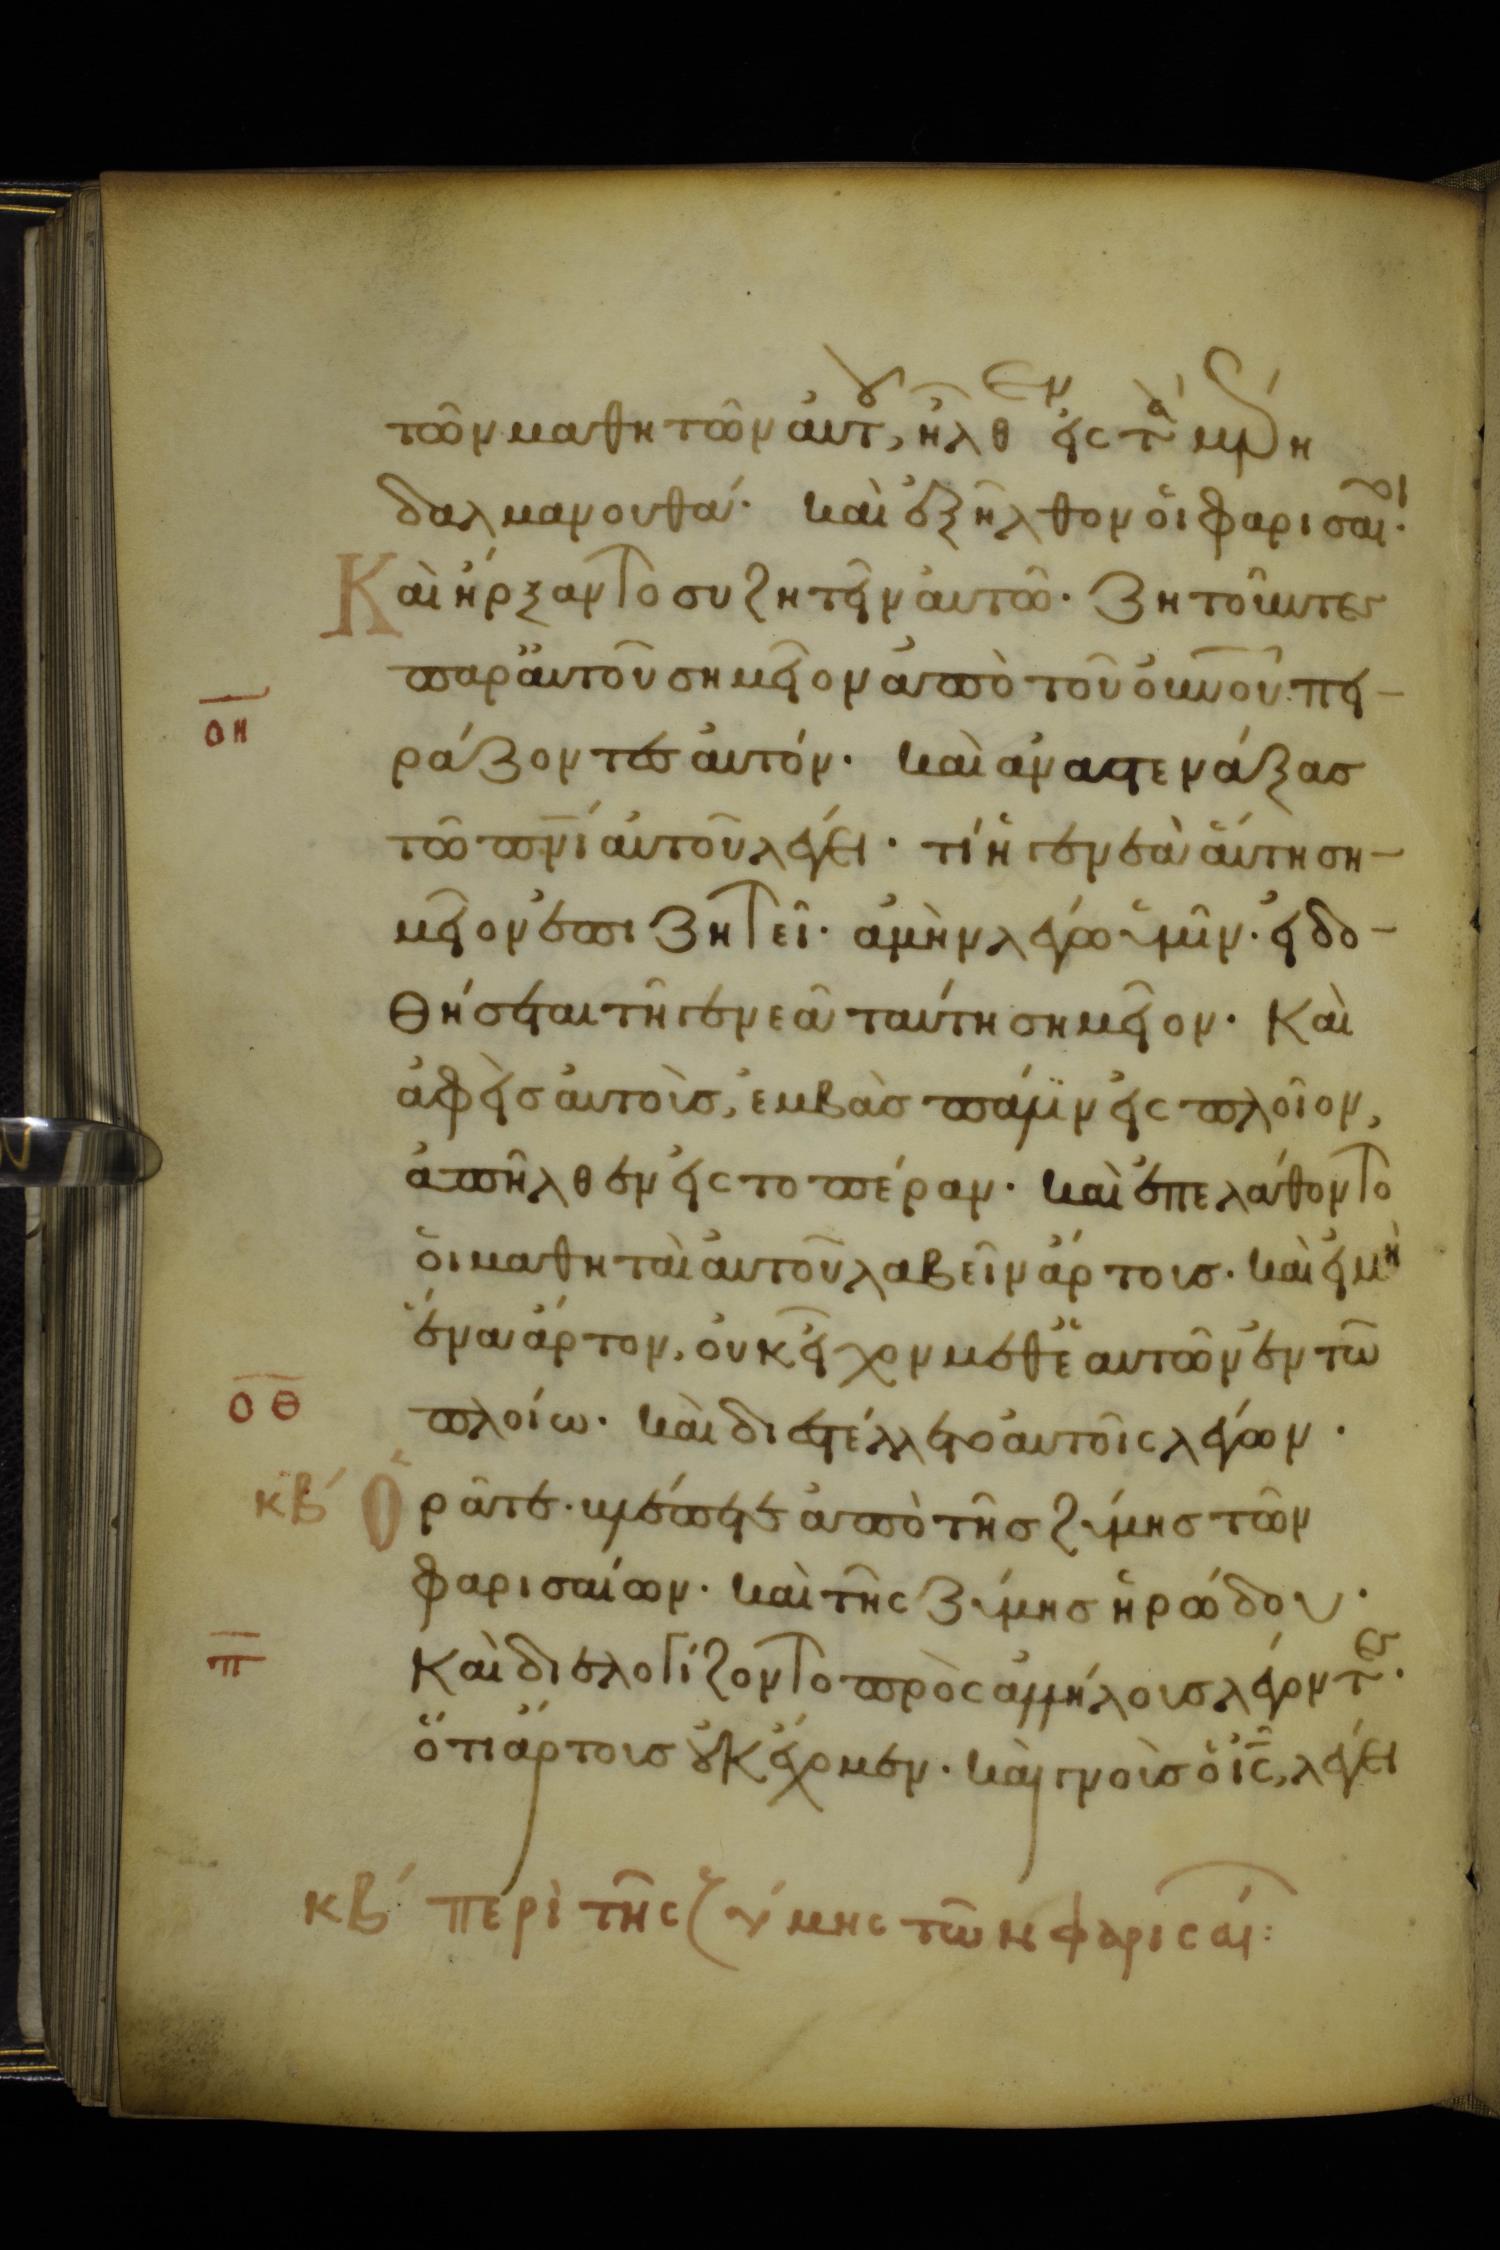 τῶν μαθητῶν αὐτοῦ, ἦλθεν εἰς τὰ μέρη
δαλμανουθά· καὶ ἐξῆλθον οἱ φαρισαῖοι·
Καὶ ἤρξαντο συζητεῖν αὐτῶ· ζητοῦντες
παρ' αὐτοῦ σημεῖον ἀπὸ τοῦ οὐνοῦ· πει-
οη
ράζοντες αὐτόν· καὶ ἀναστενάξας
τῶ πνι αὐτοῦ λέγει· τί ἡ γενεὰ αὕτη ση-
μεῖον ἐπιζητεῖ· ἀμὴν λέγω ὑμῖν· εἰ δο-
θήσεται τῆ γενεᾶ ταύτη σημεῖον· Καὶ
ἀφεὶς αὐτοὺς, ἐμβὰς πάλιν εἰς πλοῖον,
ἀπῆλθεν εἰς το πέραν· καὶ ἐπελάθοντο
οἱ μαθηταὶ αὐτοῦ λαβεῖν ἄρτους· καὶ εἰ μὴ
ἕνα ἄρτον, οὐκ εἶχον μεθ' ἑαυτῶν ἐν τῶ
οθ
πλοίω· καὶ διεστέλλετο αὐτοῖς λέγων·
κβ΄ Ὁρᾶτε· βλέπετε ἀπὸ τῆς ζύμης τῶν
φαρισαίων· καὶ τῆς ζύμης ἡρώδου·
π
Καὶ διελογίζοντο πρὸς ἀλλήλους λέγοντες·
ὅτι ἄρτους οὐκ ἔχομεν· καὶ γνοὺς ὁ ις, λέγει
κβ΄ περὶ τῆς ζύμης τῶν φαρισαί: